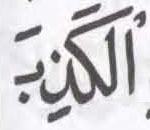 الْكَذِبَ